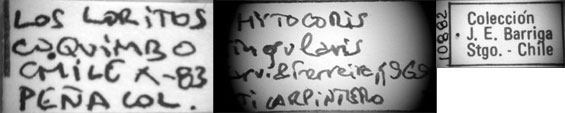 LOS LORITOS
COQUIMBO
CHILE X-83
PEÑA COL.
HYTOCORIS
ingularis
arv. & Ferreira,
TI CARPINTERO
10882
Colección
J. E. Barriga
Stgo. - Chile